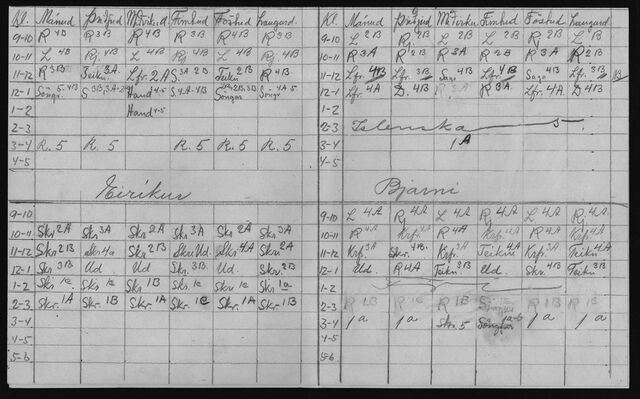 Kl. Mánud Þriðjud Miðvikud. Fimtud Föstud Laugard.
9-10 R 4B R 3B R 4B R 3B R 4B R 3B
10-11 L 4B Rj. 4B L 4B Rj. 4B L 4B Rj. 4B
11-12 R 3B Teikn 3A Lfr. 2A S. 3A 2B Teikn 2B R 4B
12-1 Söngr. 5. 4B S 3B, 3A Hand 4-5 S. 4A 4B Söngur Söngr 4A 5
1-2 Hand 4-5
2-3
3-4 R. 5 R. 5 R. 5 R. 5 R. 5
4-5
Eiríkur
9-10
10-11 Skr 2A Skr 3A Skr 2A Skr 3A Skr 2A Skr 3A
11-12 Skr 2B Skr 4a Skr 2B Skr Ud. Skr 4A Skr 2A
12-1 Skr 3B Ud Skr. Ud Skr. 3B Ud Skr. 2B
1-2 Skr 1c Skr 1c Skr 1B Skr 1c Skr 1c Skr 1a
2-3 Skr. 1A Skr. 1B Skr. 1A Skr. 1C Skr. 1A Skr. 1B
3-4
4-5
5-6
Kl. Mánud Þriðjud Miðviku. Fimtud Föstud Laugard
9-10 L 2B R 2B L 2B L 2B Rj 2B L 2B
10-11 R 3A R 2B R 3A R 2B R 3A R 2B
11-12 Lfr. 4B Lfr. 3B Saga 4B Lfr. 4B Saga 4B Lfr. 3B
12-1 Lfr. 4A D. 4B R 3A R 3A Lfr. 4A D. 4B
1-2
2-3 Íslenska 5
3-4 1A
4-5
Bjarni
9-10 L 4A Rj 4A L 4A Rj 4A L 4A Rj 4A
10-11 R 4A R 4A R 4A Krf. 4A R 4A Krf. 4A
11-12 Krf. 3A Skr. 4B. Krf. 3A Teikn 4A Krf. 3A Teikn 4A
12-1 Ud. R 4A Teikn 3B Ud. Skr. 4B Teikn 3B
1-2
2-3 R 1B R 1C R 1B R 1B R 1C
3-4 1a 1a Skr. 5 1a 1a
4-5
5-6